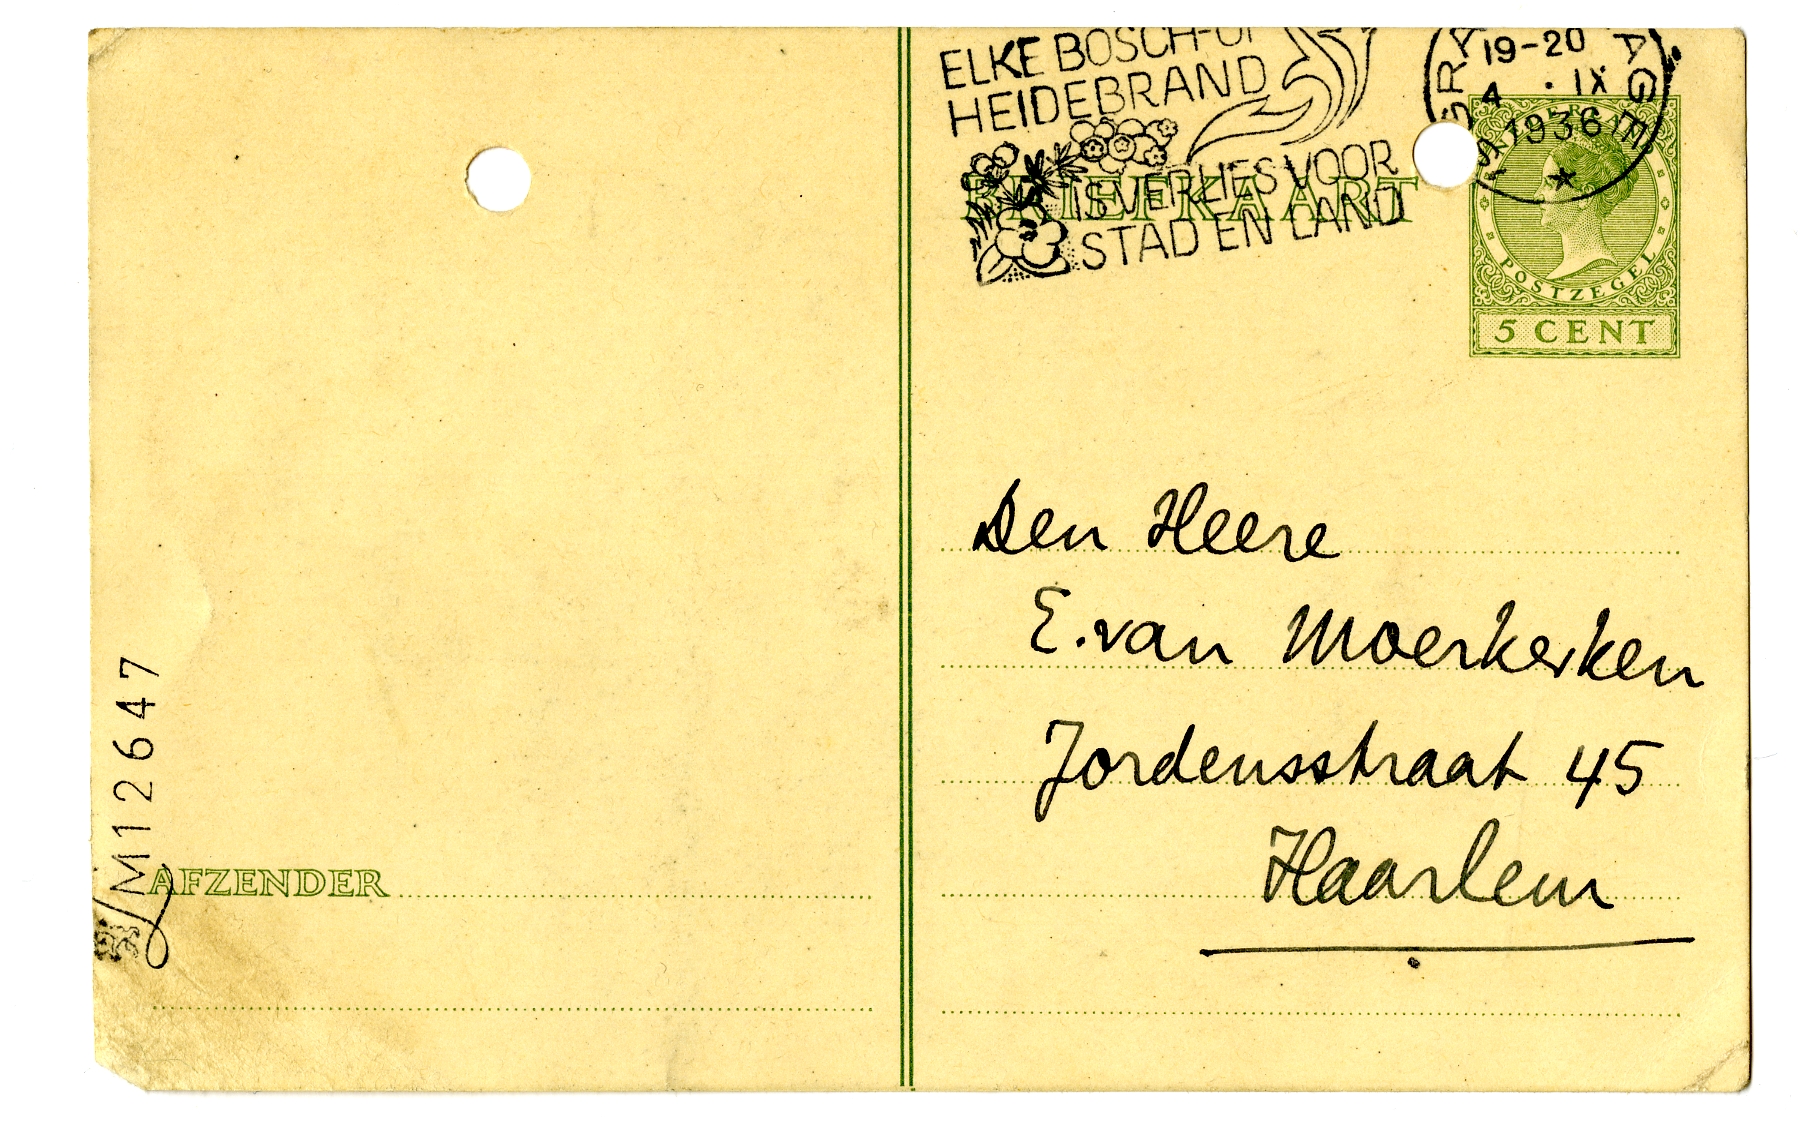 ELKE BOSCH-OF
HEIDEBRAND
IS VERLIES VOOR
STAD EN LAND
19-20
4 . IX
1936
BRIEFKAART
POSTZEGEL
5 CENT
Den Heere
E. van Moerkerken
Jordensstraat 45
Haarlem
M12647
AFZENDER